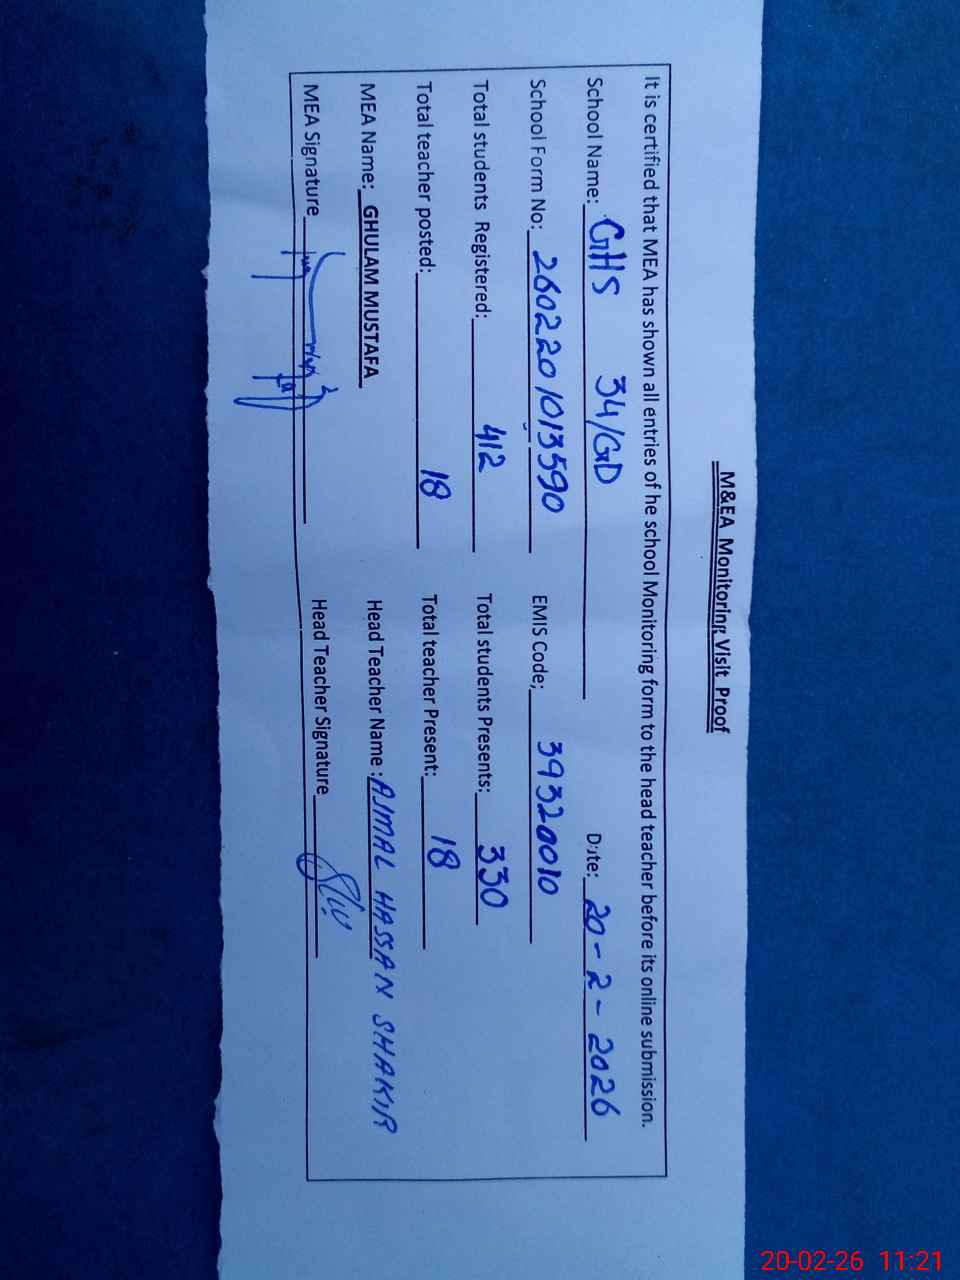 M&EA Monitoring Visit Proof
It is certified that MEA has shown all entries of he school Monitoring form to the head teacher before its online submission.
School Name: GHS 34/GD Date: 20-2-2026
School Form No: 2602201013590 EMIS Code; 39320010
Total students Registered: 412 Total students Presents: 330
Total teacher posted: 18 Total teacher Present: 18
MEA Name: GHULAM MUSTAFA Head Teacher Name : AJMAL HASSAN SHAKIR
MEA Signature Head Teacher Signature
20-02-26 11:21